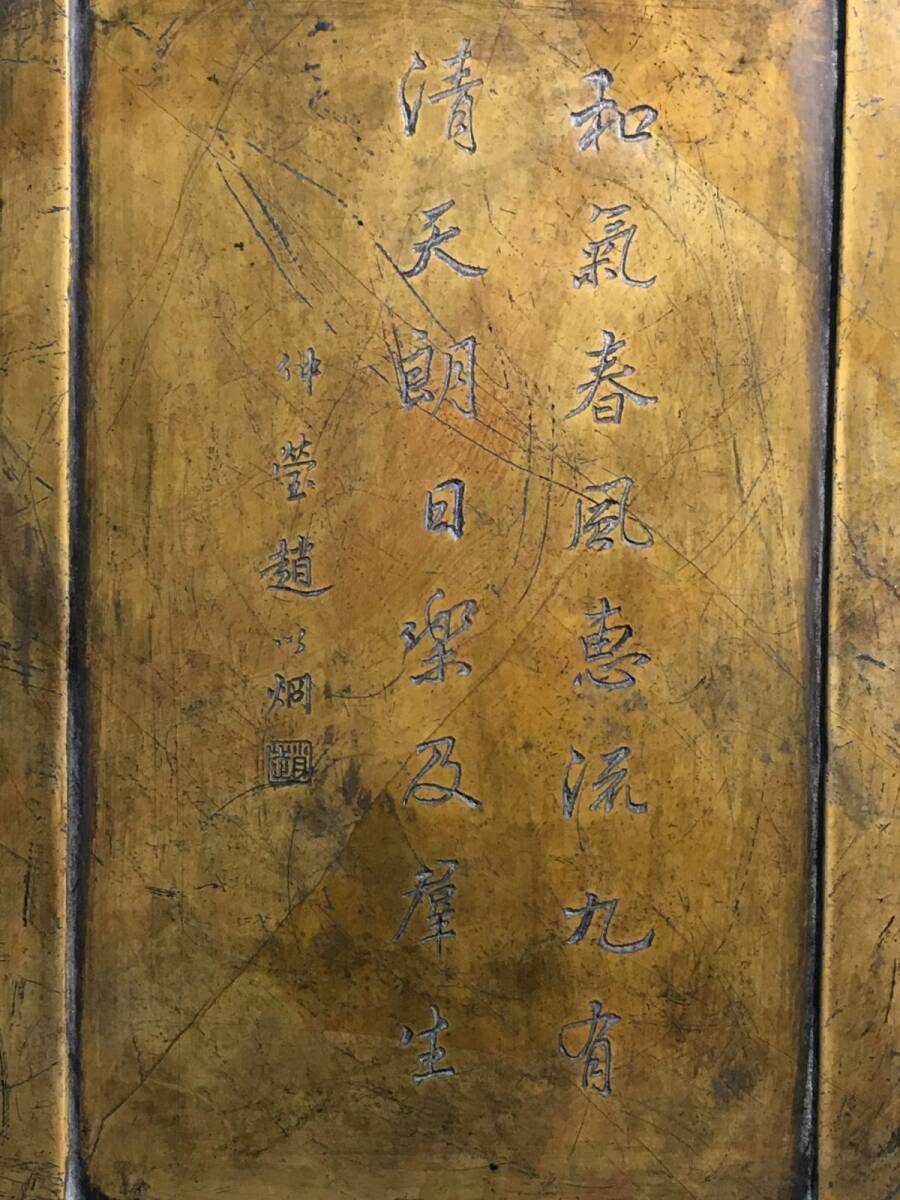 和氣春風惠流九有
清天朗日樂及羣生
仲瑩趙以烱
趙